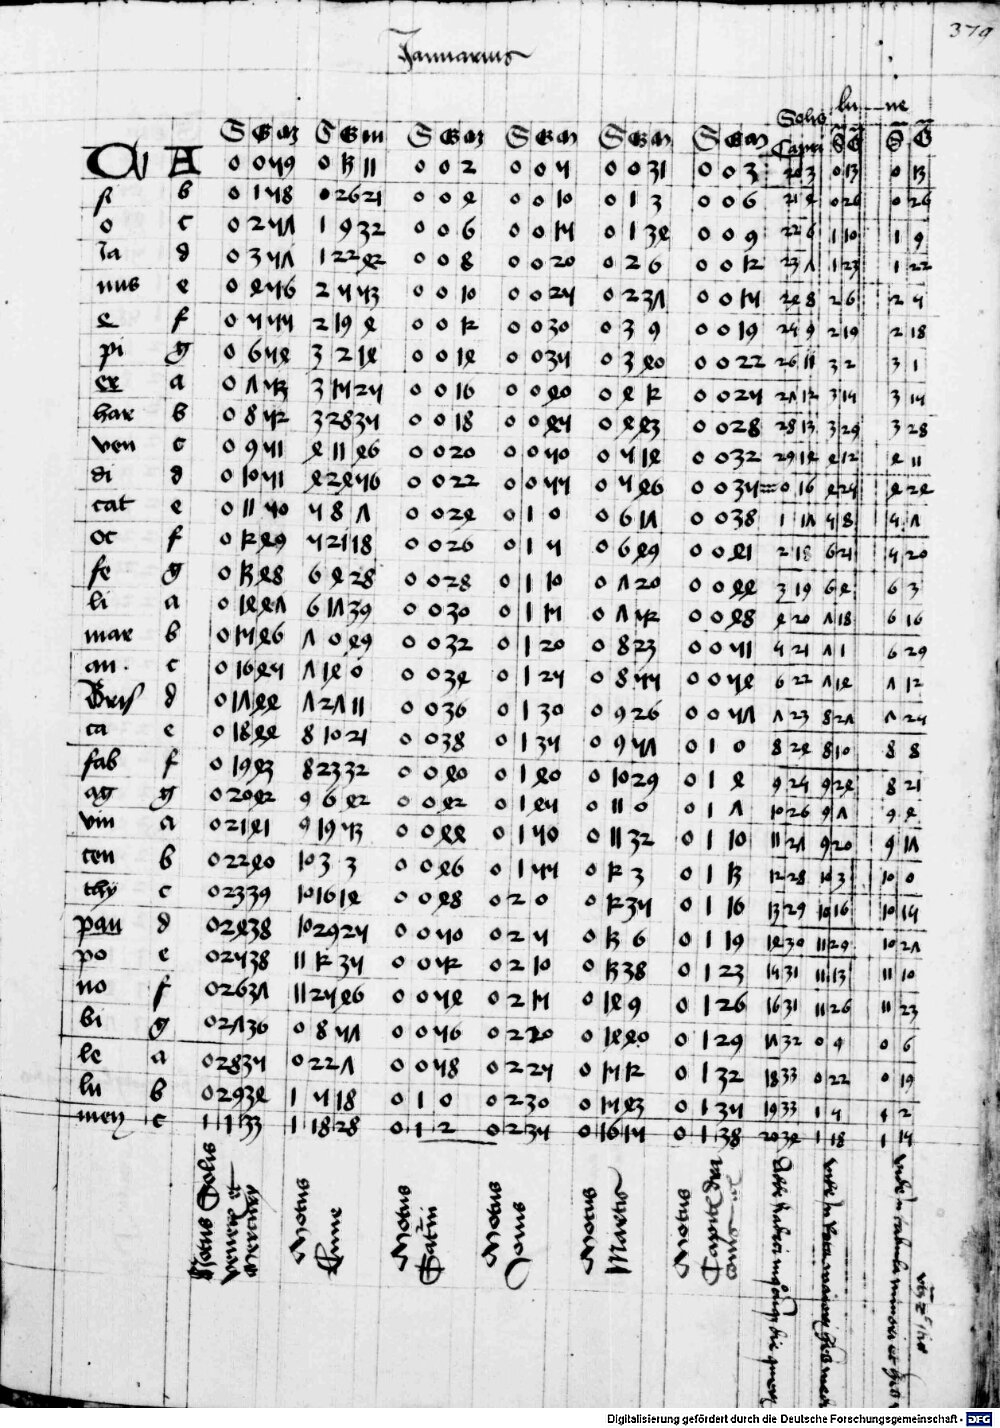 379
Januarius
Solis lu ne
S G M S G M S G M S G M S G M S G M S G S G
Ci A 0 0 59 0 13 11 0 0 2 0 0 5 0 0 31 0 0 3 20 3 0 13 0 13
si b 0 1 58 0 26 21 0 0 4 0 0 10 0 1 3 0 0 6 21 4 0 26 0 26
o c 0 2 57 1 9 32 0 0 6 0 0 15 0 1 34 0 0 9 22 6 1 10 1 9
Ja d 0 3 57 1 22 42 0 0 8 0 0 20 0 2 6 0 0 12 23 7 1 23 1 22
nus e 0 4 56 2 5 53 0 0 10 0 0 25 0 2 37 0 0 15 24 8 2 6 2 5
e f 0 5 55 2 19 4 0 0 12 0 0 30 0 3 9 0 0 19 25 9 2 19 2 18
pi g 0 6 54 3 2 14 0 0 14 0 0 35 0 3 40 0 0 22 26 11 3 2 3 1
ex a 0 7 53 3 15 25 0 0 16 0 0 40 0 4 12 0 0 25 27 12 3 15 3 15
har b 0 8 52 3 28 35 0 0 18 0 0 45 0 4 43 0 0 28 28 13 3 29 3 28
ven c 0 9 51 4 11 46 0 0 20 0 0 50 0 5 14 0 0 32 29 14 4 12 4 11
di d 0 10 51 4 24 56 0 0 22 0 0 55 0 5 46 0 0 35 0 16 4 25 4 24
cat e 0 11 50 5 8 7 0 0 24 0 1 0 0 6 17 0 0 38 1 17 5 8 5 7
oc f 0 12 49 5 21 18 0 0 26 0 1 5 0 6 49 0 0 41 2 18 6 21 5 20
fe g 0 13 48 6 4 28 0 0 28 0 1 10 0 7 20 0 0 44 3 19 6 4 6 3
li a 0 14 47 6 17 39 0 0 30 0 1 15 0 7 52 0 0 48 4 20 7 18 6 16
mar b 0 15 46 7 0 49 0 0 32 0 1 20 0 8 23 0 0 51 5 21 7 1 6 29
an c 0 16 45 7 14 0 0 0 34 0 1 25 0 8 55 0 0 54 6 22 7 14 7 12
Pris d 0 17 44 7 27 11 0 0 36 0 1 30 0 9 26 0 0 57 7 23 8 27 7 25
ca e 0 18 44 8 10 21 0 0 38 0 1 35 0 9 57 0 1 0 8 24 8 10 8 8
fab f 0 19 43 8 23 32 0 0 40 0 1 40 0 10 29 0 1 4 9 25 9 24 8 21
ag g 0 20 42 9 6 42 0 0 42 0 1 45 0 11 0 0 1 7 10 26 9 7 9 4
vin a 0 21 41 9 19 53 0 0 44 0 1 50 0 11 32 0 1 10 11 27 9 20 9 17
cen b 0 22 40 10 3 3 0 0 46 0 1 55 0 12 3 0 1 13 12 28 10 3 10 0
thy c 0 23 39 10 16 14 0 0 48 0 2 0 0 12 35 0 1 16 13 29 10 16 10 14
pau d 0 24 38 10 29 25 0 0 50 0 2 5 0 13 6 0 1 19 14 30 11 29 10 27
po e 0 25 38 11 12 35 0 0 52 0 2 10 0 13 38 0 1 23 15 31 11 13 11 10
no f 0 26 37 11 25 46 0 0 54 0 2 15 0 14 9 0 1 26 16 31 11 26 11 23
bi g 0 27 36 0 8 57 0 0 56 0 2 20 0 14 40 0 1 29 17 32 0 9 0 6
le a 0 28 35 0 22 7 0 0 58 0 2 25 0 15 12 0 1 32 18 33 0 22 0 19
lu b 0 29 34 1 5 18 0 1 0 0 2 30 0 15 43 0 1 35 19 33 1 5 1 2
men c 1 1 33 1 18 28 0 1 2 0 2 35 0 16 15 0 1 38 20 34 1 18 1 15
Motus Solis Veneris et Mercurij
Motus Lune
Motus Saturni
Motus Jovis
Motus Martis
Motus Capitis
Digitalisierung gefördert durch die Deutsche Forschungsgemeinschaft - DFG